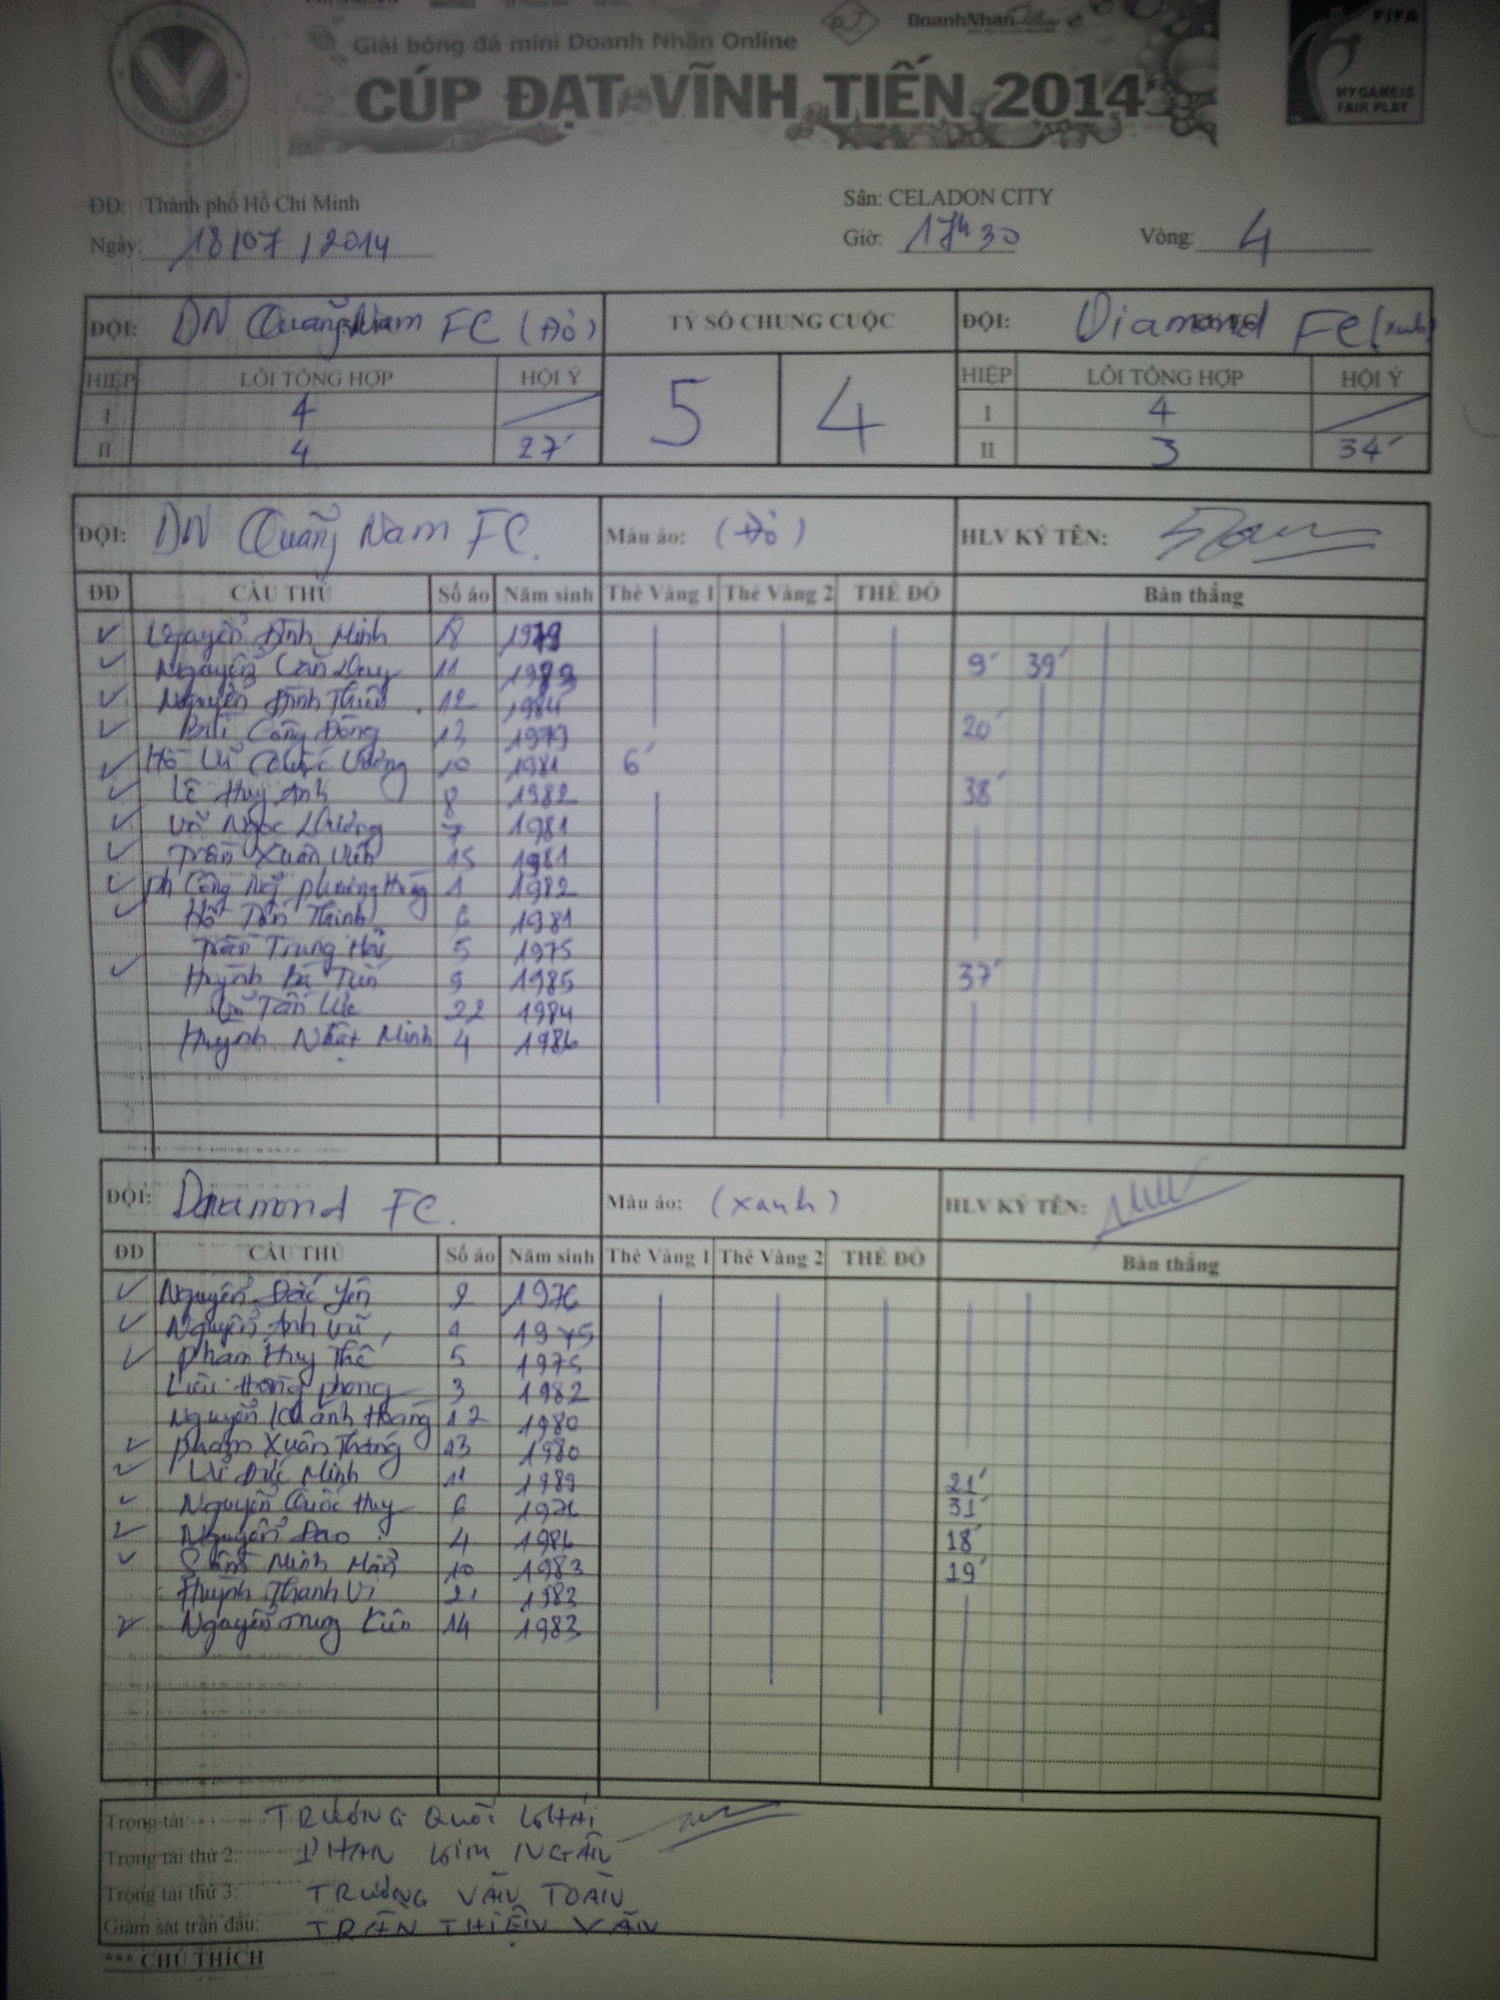 DoanhNhân
FIFA
Giải bóng đá mini Doanh Nhân Online
CÚP ĐẠT VĨNH TIẾN 2014
MY GAME IS
FAIR PLAY
ĐĐ: Thành phố Hồ Chí Minh Sân: CELADON CITY
Ngày: 18/07/2014 Giờ: 17h30 Vòng: 4
ĐỘI: DN Quảng Nam FC (Đỏ) TỶ SỐ CHUNG CUỘC ĐỘI: Diamond FC (xanh)
HIỆP LỖI TỔNG HỢP HỘI Ý 5 4 HIỆP LỖI TỔNG HỢP HỘI Ý
I 4 I 4
II 4 27' II 3 34'
ĐỘI: DN Quảng Nam FC. Màu áo: (Đỏ) HLV KÝ TÊN:
ĐD CẦU THỦ Số áo Năm sinh Thẻ Vàng 1 Thẻ Vàng 2 THẺ ĐỎ Bàn thắng
✓ Nguyễn Đình Minh 18
✓ Nguyễn Văn 11 9' 39'
✓ Nguyễn Đình 12 1984
✓ Bùi Công Đồng 13 1979 20'
✓ Hồ Quốc Vương 10 1981 6'
✓ Lê Huy Anh 8 1982 38'
✓ Võ Ngọc 7 1981
✓ Trần Xuân 15 1981
✓ Công Phương 1 1982
✓ Hồ Tấn Thịnh 6 1981
Trần Trung Hải 5 1975
✓ Huỳnh Bá Tiến 9 1985 37'
Tấn 22 1984
Huỳnh Nhật Minh 4 1986
ĐỘI: Diamond FC. Màu áo: (xanh) HLV KÝ TÊN:
ĐD CẦU THỦ Số áo Năm sinh Thẻ Vàng 1 Thẻ Vàng 2 THẺ ĐỎ Bàn thắng
✓ Nguyễn Đắc Yên 1976
✓ Nguyễn Anh Vũ 1 1975
✓ Phạm Huy Thế 5 1975
Liêu Hồng Phong 3 1982
Nguyễn Khánh Hoàng 12 1980
✓ Phạm Xuân Thắng 13 1980
✓ Đức Minh 11 1989 21'
✓ Nguyễn Quốc Huy 6 1976 31'
✓ Nguyễn Đao 4 1986 18'
✓ Minh Mẫn 10 1983 19'
Huỳnh Thanh Vi 21 1983
✓ Nguyễn Trung Kiên 14 1983
Trọng tài: TRƯƠNG QUỐC KHÁI
Trọng tài thứ 2: PHAN KIM NGÂN
Trọng tài thứ 3: TRƯƠNG VĂN TOÀN
Giám sát trận đấu: TRẦN THIỆN VĂN
*** CHÚ THÍCH